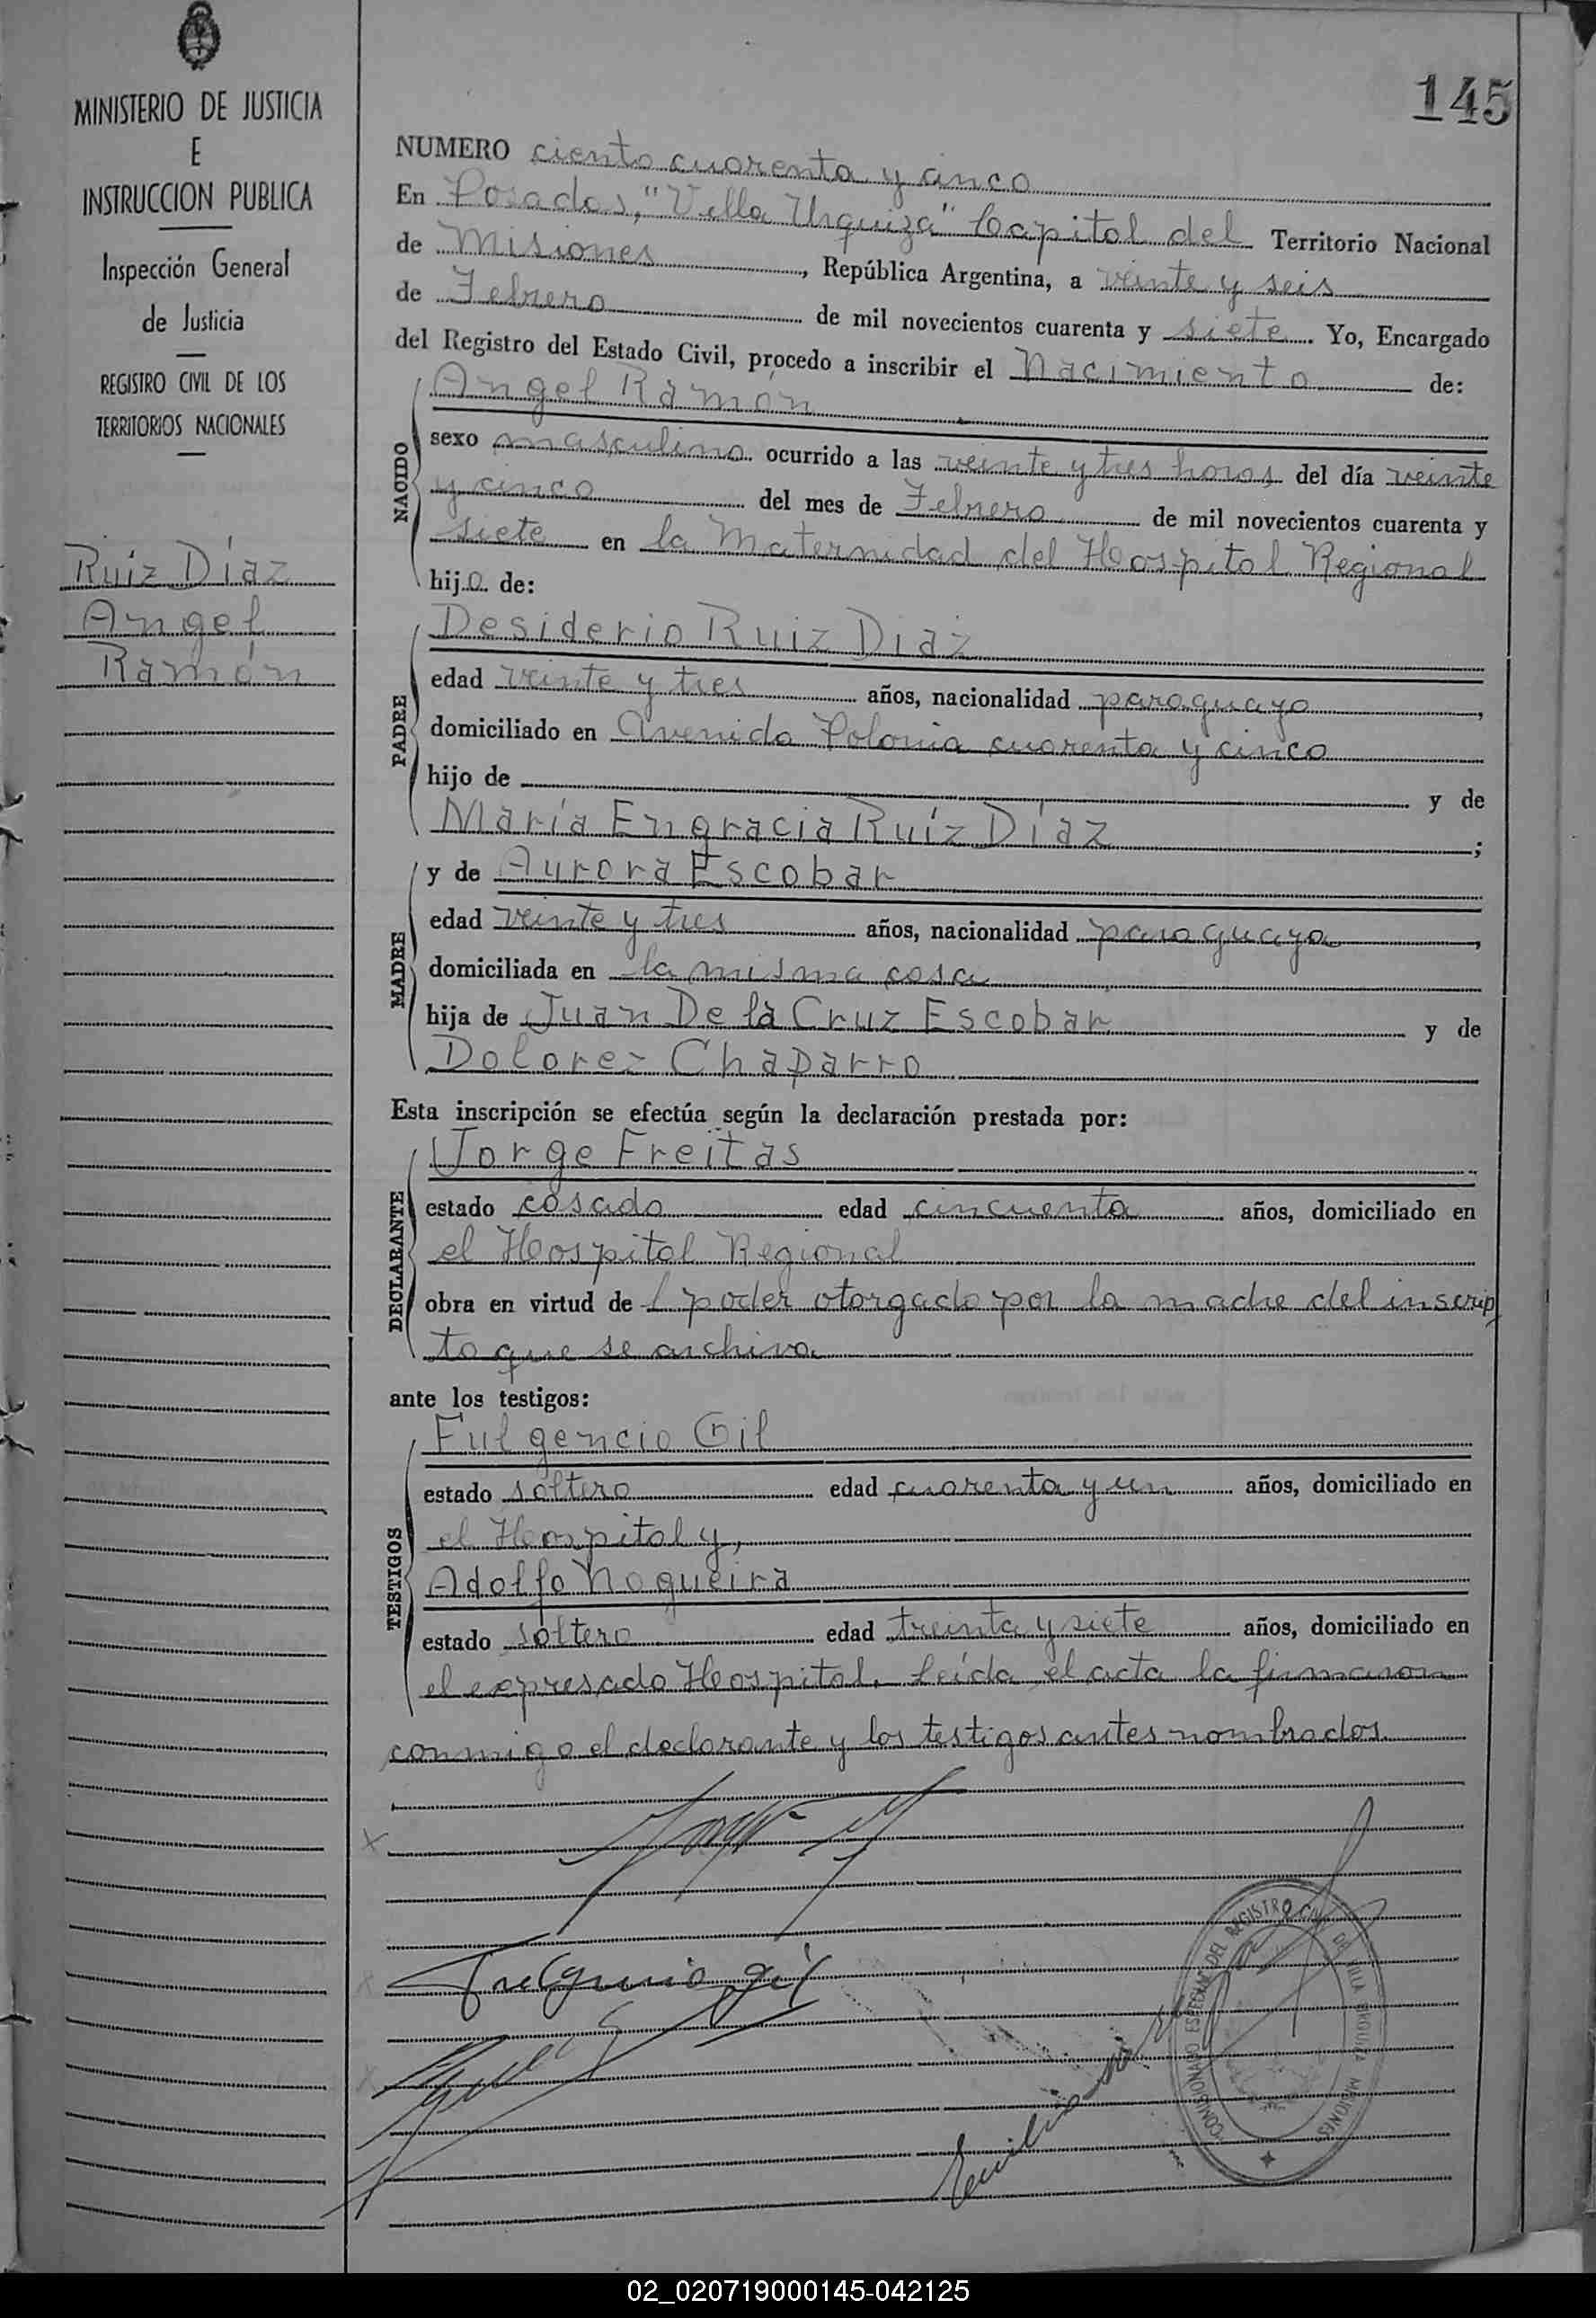 MINISTERIO DE JUSTICIA
E
INSTRUCCION PUBLICA
Inspección General
de Justicia
REGISTRO CIVIL DE LOS
TERRITORIOS NACIONALES
Ruiz Díaz
Angel
Ramón
145
NUMERO ciento cuarenta y cinco
En Posadas, "Villa Urquiza" Capital del Territorio Nacional
de Misiones, República Argentina, a veinte y seis
de Febrero de mil novecientos cuarenta y siete. Yo, Encargado
del Registro del Estado Civil, procedo a inscribir el Nacimiento de:
NACIDO
Angel Ramón
sexo masculino ocurrido a las veinte y tres horas del día veinte
y cinco del mes de Febrero de mil novecientos cuarenta y
siete en la Maternidad del Hospital Regional
hijo de:
PADRE
Desiderio Ruiz Díaz
edad veinte y tres años, nacionalidad paraguayo,
domiciliado en Avenida Polonia cuarenta y cinco
hijo de y de
María Engracia Ruíz Díaz;
MADRE
y de Aurora Escobar
edad veinte y tres años, nacionalidad paraguaya,
domiciliada en la misma casa
hija de Juan De la Cruz Escobar y de
Dolorez Chaparro
Esta inscripción se efectúa según la declaración prestada por:
DECLARANTE
Jorge Freitas
estado casado edad cincuenta años, domiciliado en
el Hospital Regional
obra en virtud de l poder otorgado por la madre del inscrip
to que se archiva
ante los testigos:
TESTIGOS
Fulgencio Gil
estado soltero edad cuarenta y un años, domiciliado en
el Hospital y,
Adolfo Nogueira
estado soltero edad treinta y siete años, domiciliado en
el expresado Hospital. Leída el acta la firmaron
conmigo el declarante y los testigos antes nombrados.
Fulgencio Gil
Emilio
COMISIONADO ESPECIAL DEL REGISTRO CIVIL DE VILLA URQUIZA MISIONES
02_020719000145-042125